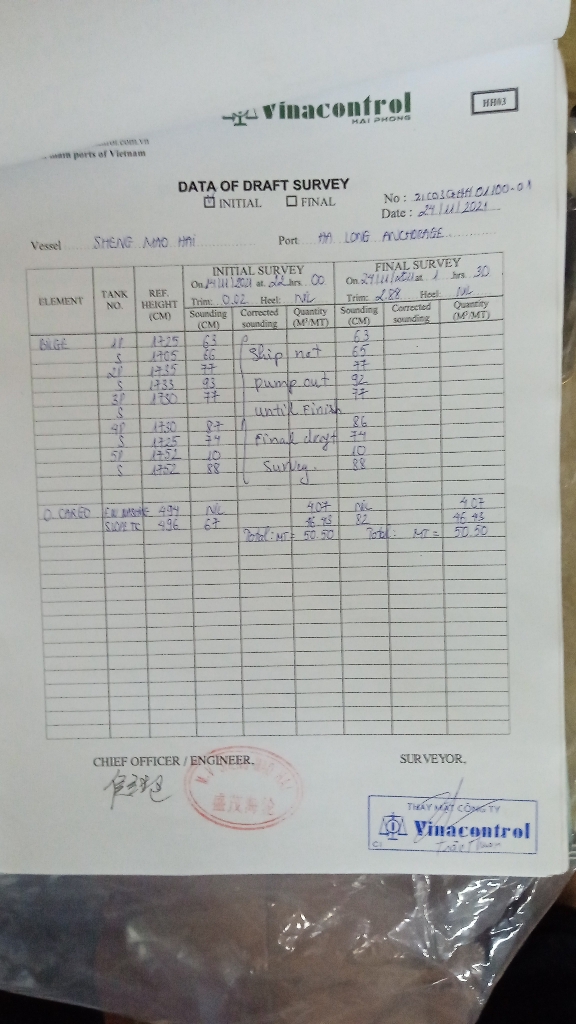 Vinacontrol
HAI PHONG
HH03
main ports of Vietnam
DATA OF DRAFT SURVEY
INITIAL FINAL
No :
Date : 24/11/2021
Vessel SHENG MAO HAI Port HA LONG ANCHORAGE
ELEMENT TANK NO. REF. HEIGHT (CM) INITIAL SURVEY FINAL SURVEY
On 14/11/2021 at 22 hrs 00 On 24/11/2021 at 1 hrs 30
Trim: 0.02 Heel: NiL Trim: 2.88 Heel: NiL
Sounding (CM) Corrected sounding Quantity (M³/MT) Sounding (CM) Corrected sounding Quantity (M³/MT)
BILGE 1P 1725 63 63
S 1705 66 Ship not 65
2P 1735 77 77
S 1733 93 pump out 92
3P 1730 77 77
S until Finish
4P 1730 87 86
S 1725 74 Final draft 74
5P 1752 10 10
S 1752 88 Survey. 88
O. CARGO 494 NiL 4.07 NiL 4.07
496 67 46.43 82 46.43
Total: MT= 50.50 Total: MT= 50.50
CHIEF OFFICER / ENGINEER. SURVEYOR.
THAY MẶT CÔNG TY
Vinacontrol
C1